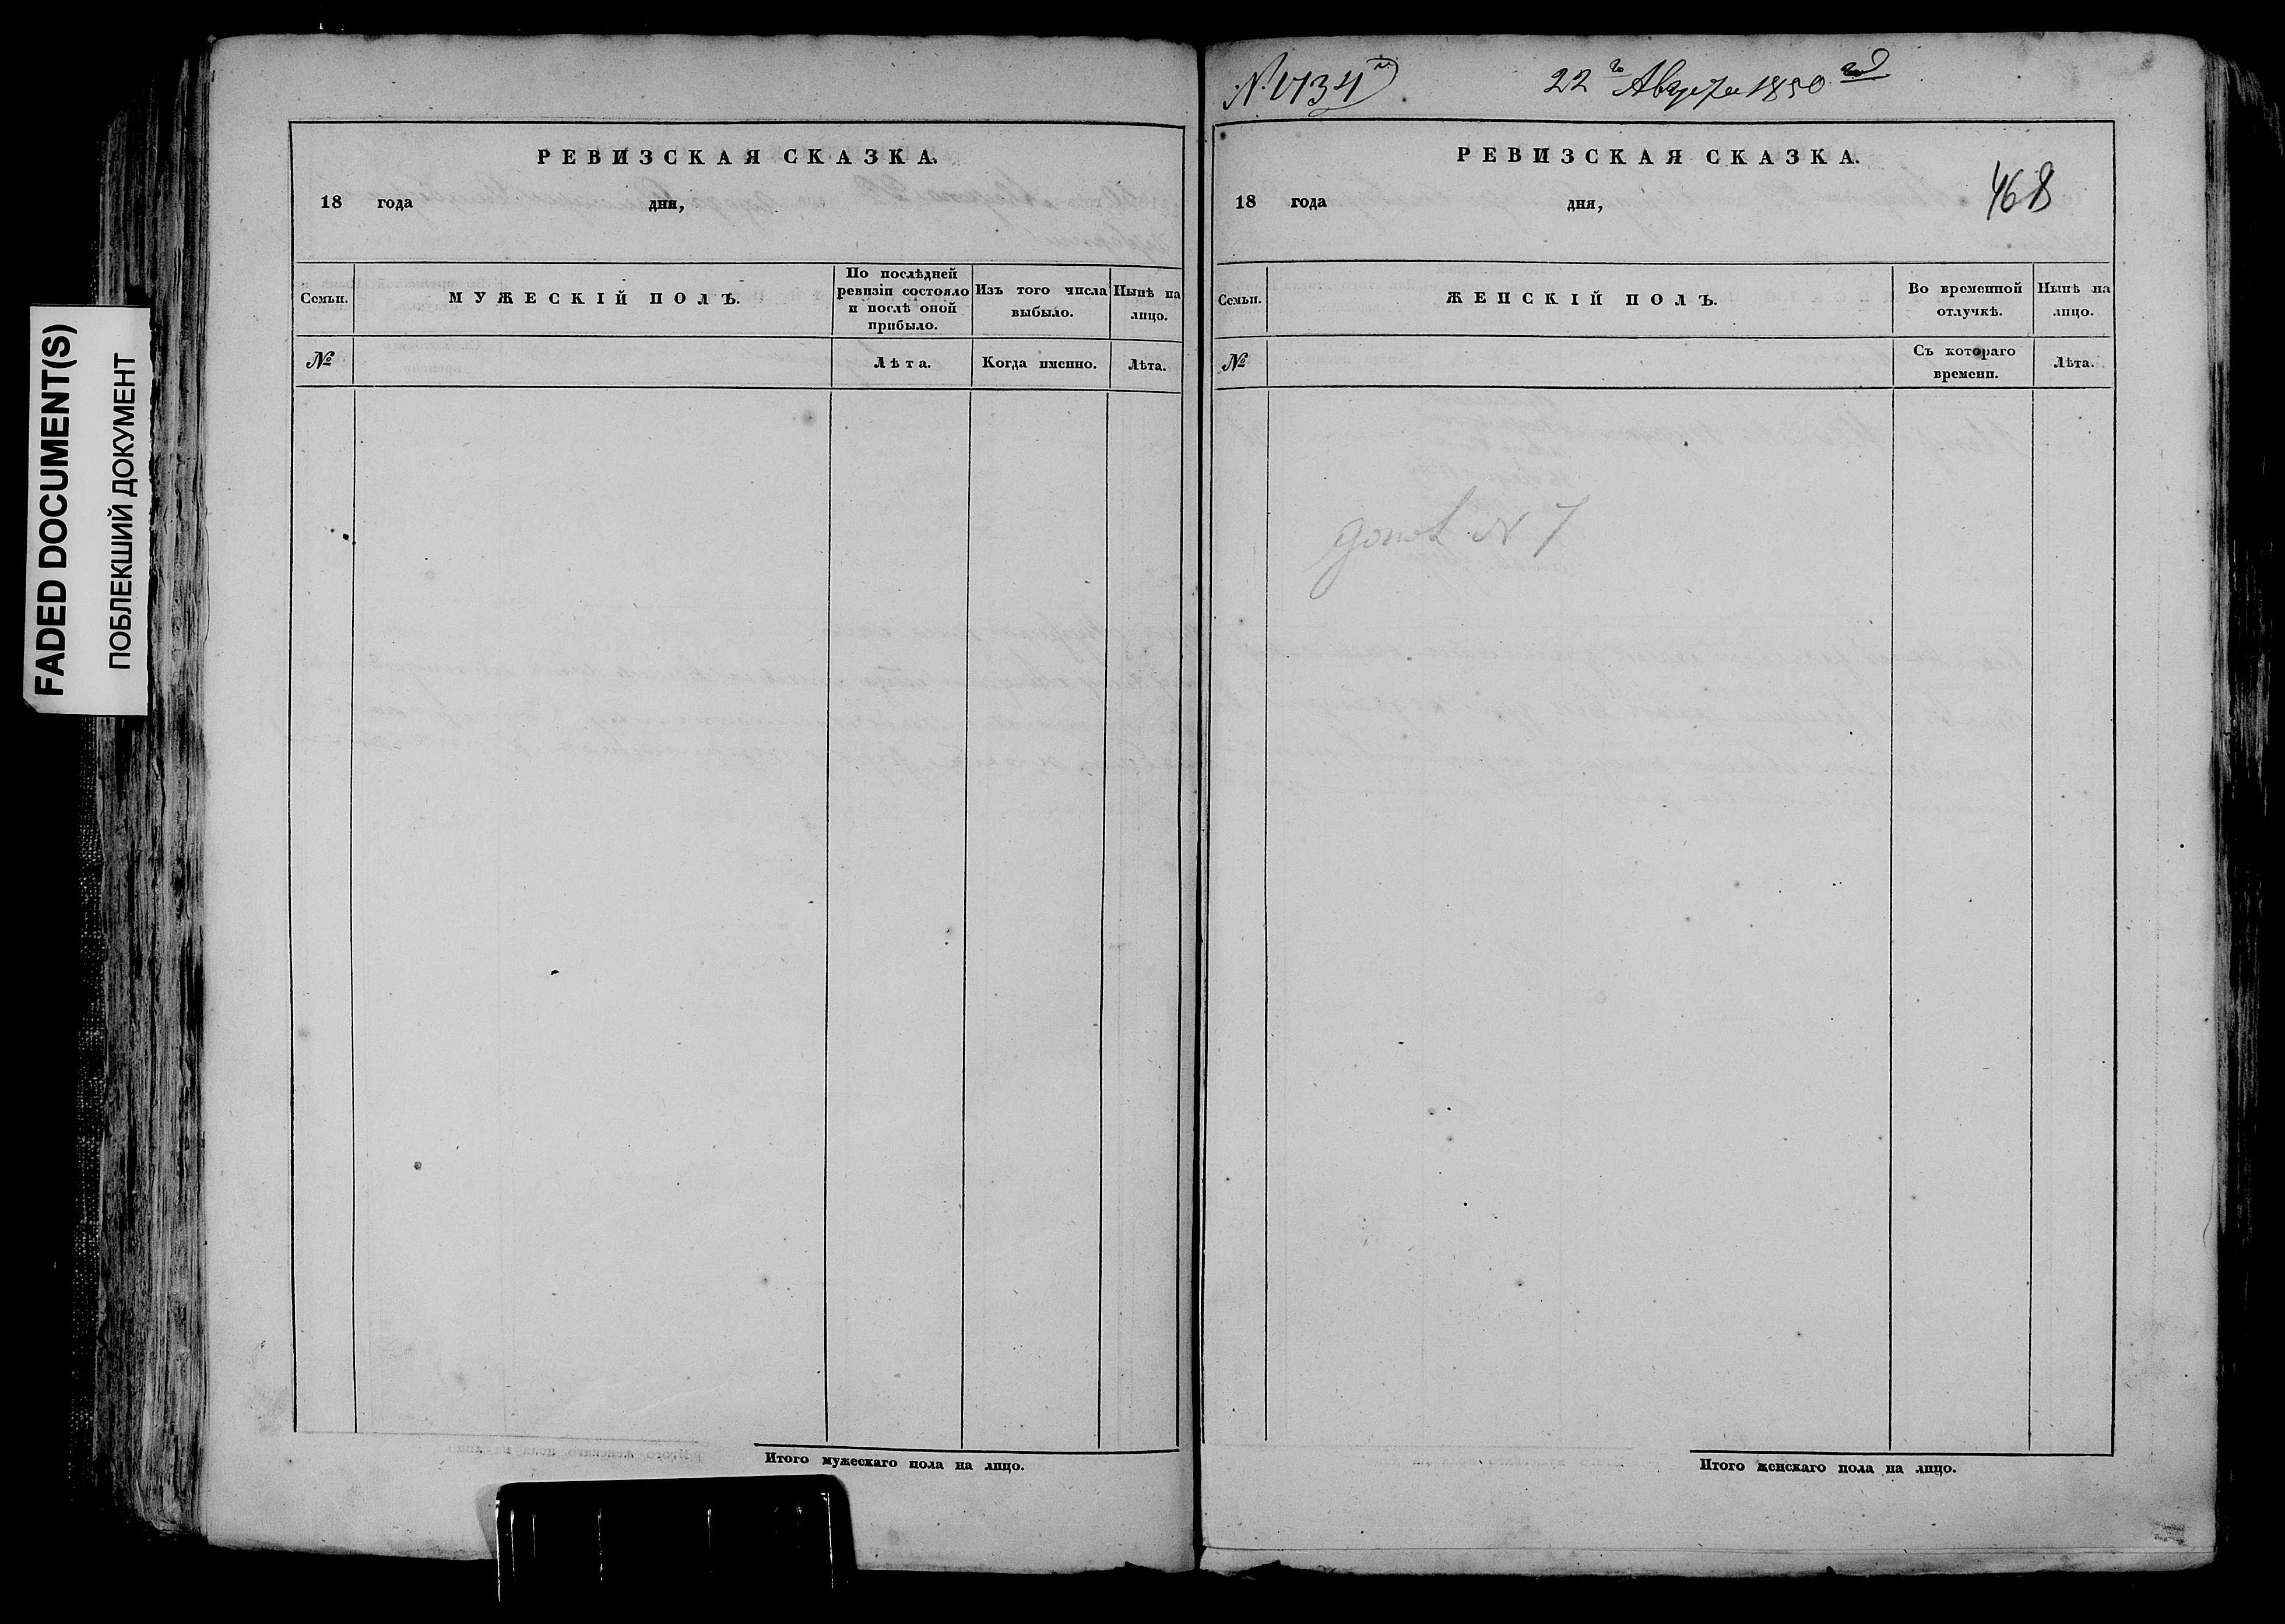 FADED DOCUMENT(S)
ПОБЛЕКШИЙ ДОКУМЕНТ
РЕВИЗСКАЯ СКАЗКА.
18 года дня,
Семьи.
МУЖЕСКІЙ ПОЛЪ.
По послѣдней
ревизіи состояло
и послѣ оной
прибыло.
Изъ того числа
выбыло.
Нынѣ на
лицо.
№
Лѣта.
Когда именно.
Лѣта.
Итого мужескаго пола на лицо.
22го Августа 1850 год
РЕВИЗСКАЯ СКАЗКА.
468
18 года дня,
Семьи.
ЖЕНСКІЙ ПОЛЪ.
Во временной
отлучкѣ.
Нынѣ на
лицо.
№
Съ котораго
времени.
Лѣта.
N 7
Итого женскаго пола на лицо.